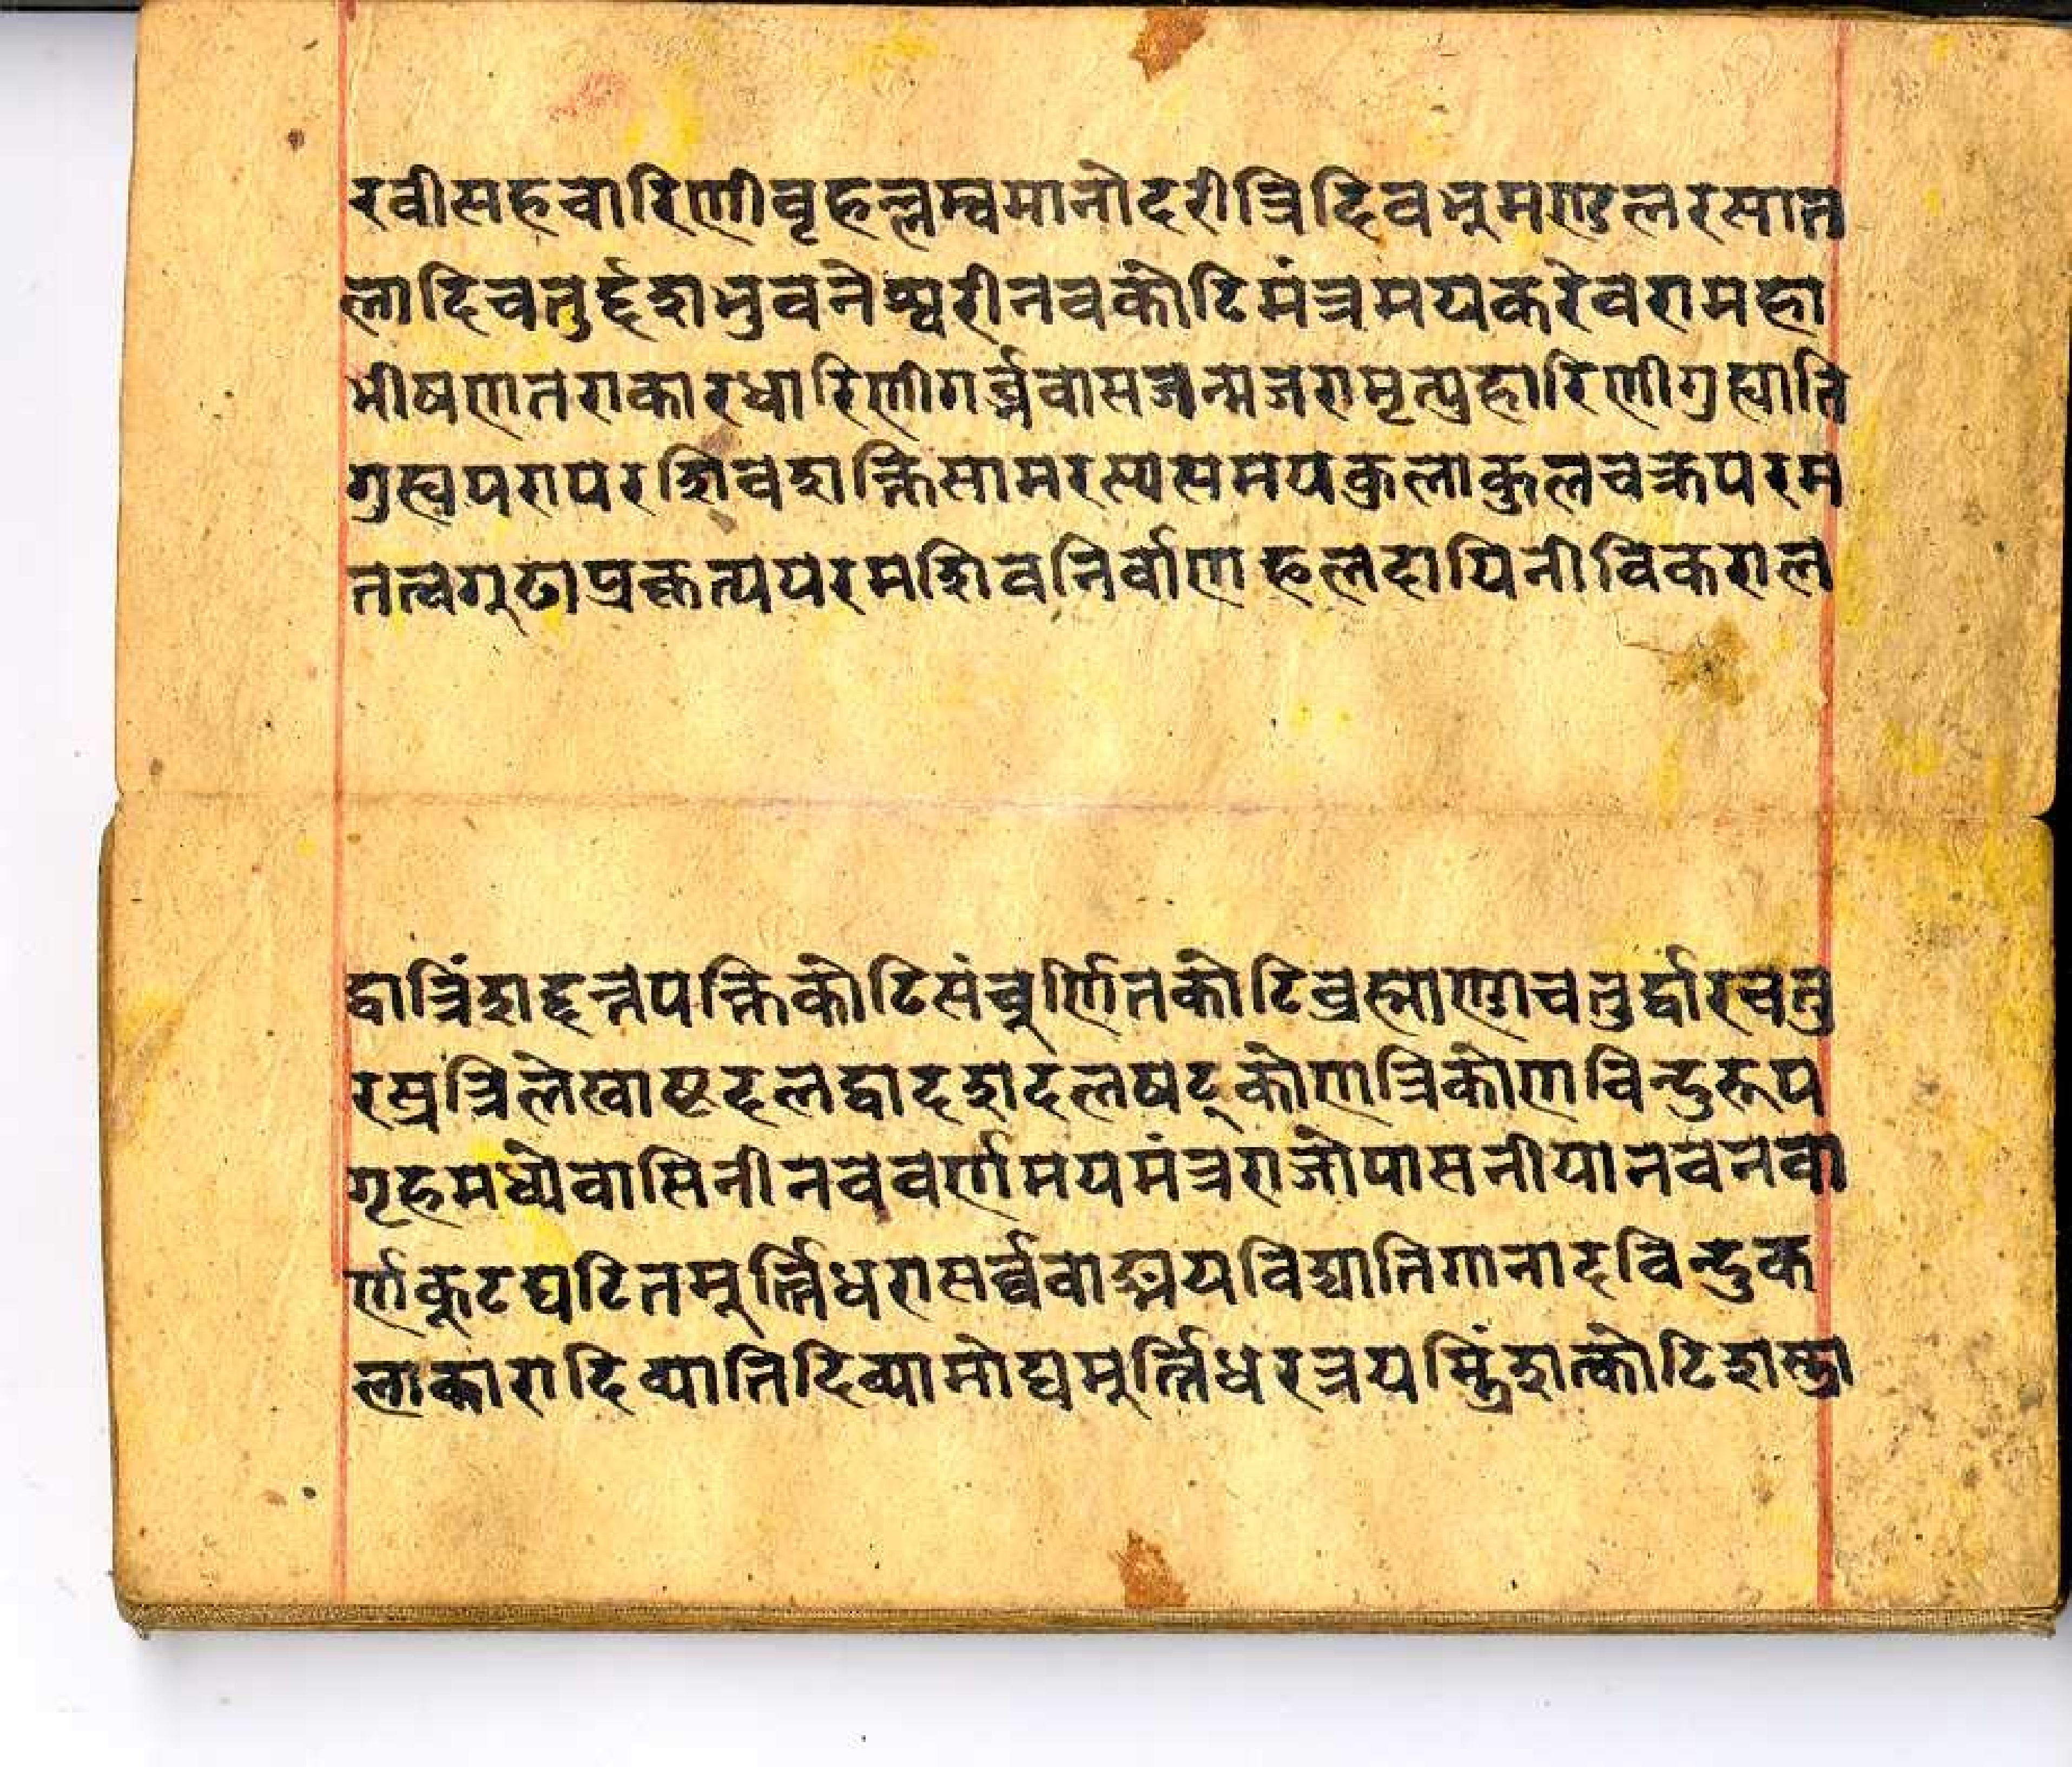 रवीसहचारिणीवृहल्लम्बमानोदरीत्रिदिवभूमण्डलरसात
लादिचतुर्द्दशभुवनेश्वरीनवकोटिमंत्रमयकरेवरामहा
भीषणातराकारधारिणीगर्ब्भवासजन्मजरामृत्युहारिणीगुह्याति
गुह्यपरापरशिवशक्तिसामरस्यसमयकुलाकुलचक्रपरम
तत्वगूढाप्रकृत्यपरमशिवनिर्वाणफलदायिनीविकराल
द्वात्रिंशद्दन्तपक्तिकोटिसंचूर्णितकोटिव्रह्माण्डाचतुर्द्वारचतु
रस्रत्रिलेखाष्टदलद्वादशदलषट्कोणत्रिकोणविन्दुरूप
गृहमध्येवासिनीनववर्णमयमंत्रराजोपासनीयानवनवा
र्णकूटघटितमूर्त्तिधरासर्व्ववाङ्मयविद्यातिगानादविन्दुक
लाकारादिव्यातिदिव्यामोघमूर्त्तिधरत्रयस्त्रिंशत्कोटिशस्त्रा